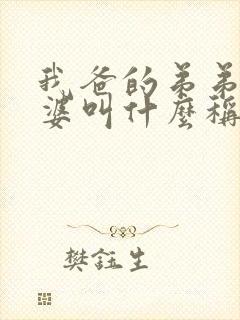 我爸的弟弟
婆叫什麼稱
樊鈺生